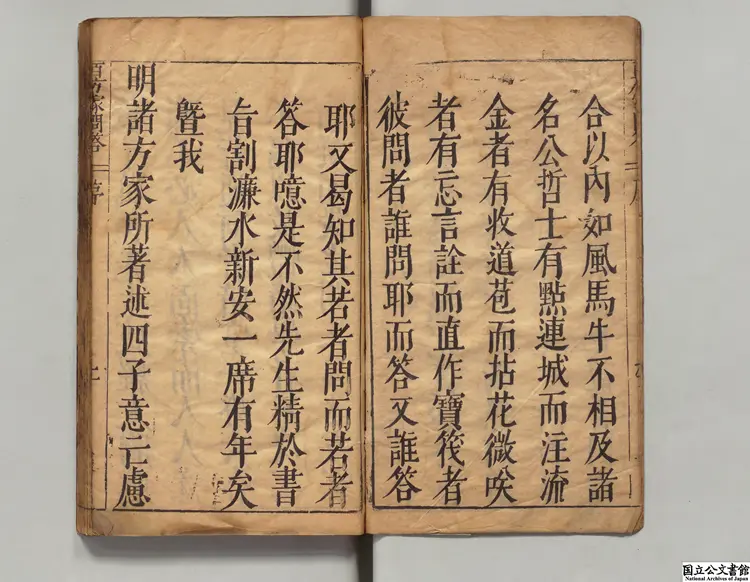 合以內如風馬牛不相及諸
名公哲士有點連城而注流
金者有收道苞而拈花微咲
者有忘言詮而直作寶筏者
彼問者誰問耶而答又誰答
耶又曷知其若者問而若者
答耶噫是不然先生精於書
旨割濂水新安一席有年矣
曁我
明諸方家所著述四子意亡慮
百方家問答 序
国立公文書館
National Archives of Japan